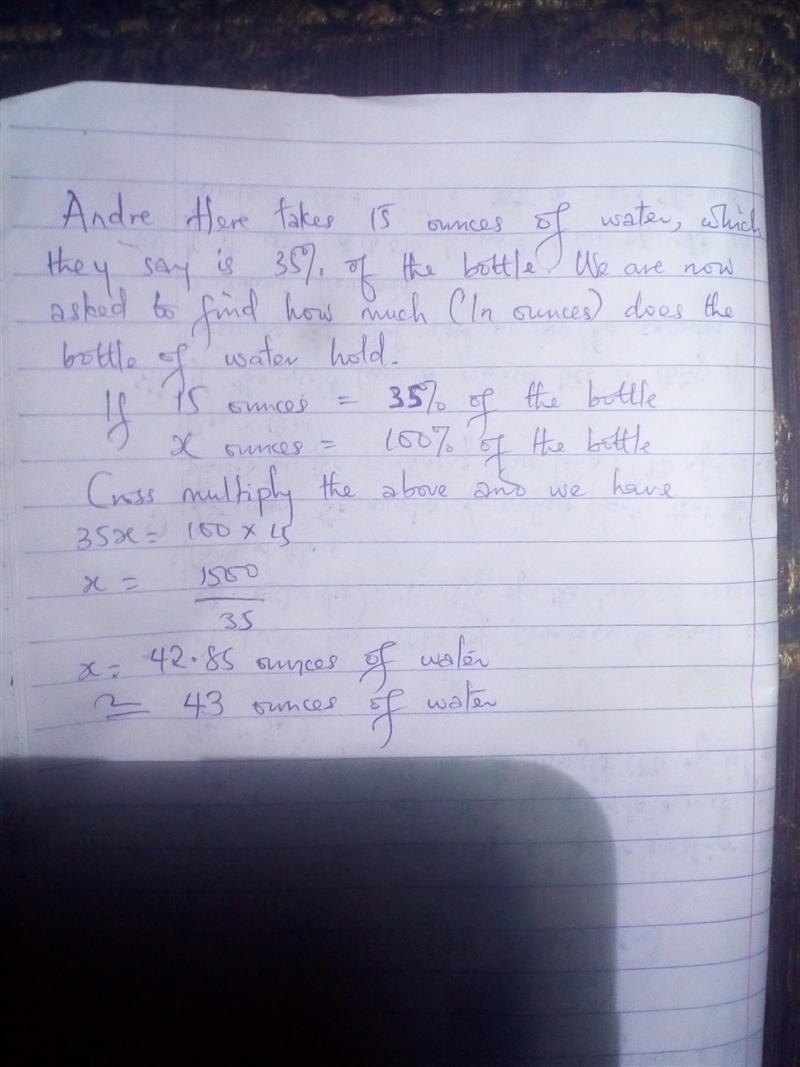 Andre Here takes 15 ounces of water, which
they say is 35% of the bottle. We are now
asked to find how much (In ounces) does the
bottle of water hold.
If 15 ounces = 35% of the bottle
x ounces = 100% of the bottle
Cross multiply the above and we have
35x = 100 × 15
x = 1500
35
x = 42.85 ounces of water
≃ 43 ounces of water